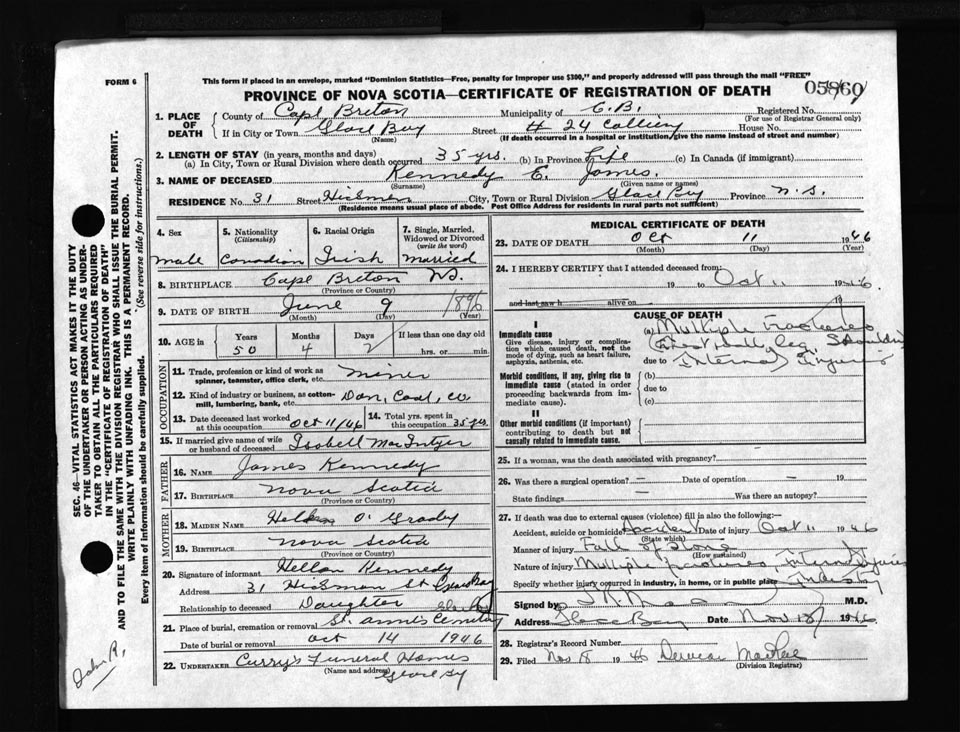 FORM 6
This form if placed in an envelope, marked "Dominion Statistics—Free, penalty for improper use $300," and properly addressed will pass through the mail "FREE"
PROVINCE OF NOVA SCOTIA—CERTIFICATE OF REGISTRATION OF DEATH
1. PLACE OF DEATH County of Cape Breton Municipality of C.B. Registered No.
(For use of Registrar General only)
If in City or Town Glace Bay Street # 24 Colliery House No.
(Name) (If death occurred in a hospital or institution, give the name instead of street and number)
2. LENGTH OF STAY (in years, months and days)
(a) In City, Town or Rural Division where death occurred 35 yrs. (b) In Province Life (c) In Canada (if immigrant)
3. NAME OF DECEASED Kennedy C. James.
(Surname) (Given name or names)
RESIDENCE No. 31 Street City, Town or Rural Division Glace Bay Province N.S.
(Residence means usual place of abode. Post Office Address for residents in rural parts not sufficient)
4. Sex
male
5. Nationality
(Citizenship)
Canadian
6. Racial Origin
Irish
7. Single, Married, Widowed or Divorced
(write the word)
married
8. BIRTHPLACE Cape Breton N.S.
(Province or Country)
9. DATE OF BIRTH June 9 1896
(Month) (Day) (Year)
10. AGE in Years Months Days If less than one day old
50 4 2 hrs. or min.
OCCUPATION
11. Trade, profession or kind of work as
spinner, teamster, office clerk, etc. miner
12. Kind of industry or business, as cotton-
mill, lumbering, bank, etc. Dom, Coal, co
13. Date deceased last worked
at this occupation Oct 11/46
14. Total yrs. spent in
this occupation 35 yrs.
15. If married give name of wife
or husband of deceased Isabell MacIntyer
FATHER
16. NAME James Kennedy
17. BIRTHPLACE Nova Scotia
(Province or Country)
MOTHER
18. MAIDEN NAME O'Grady
19. BIRTHPLACE Nova Scotia
(Province or Country)
20. Signature of informant Hellon Kennedy
Address 31 Hickman St Glace Bay
Relationship to deceased Daughter Glace Bay
21. Place of burial, cremation or removal St. Anne's Cemetery
Date of burial or removal Oct 14 1946
22. UNDERTAKER Curry's Funeral Homes
(Name and address) Glace By
MEDICAL CERTIFICATE OF DEATH
23. DATE OF DEATH Oct 11 1946
(Month) (Day) (Year)
24. I HEREBY CERTIFY that I attended deceased from:
19 to Oct 11 1946.
and last saw h alive on 19
CAUSE OF DEATH
I
Immediate cause
Give disease, injury or complication which caused death, not the mode of dying, such as heart failure, asphyxia, asthenia, etc.
(a) Multiple Fractures
leg
due to Internal Injuries
Morbid conditions, if any, giving rise to immediate cause (stated in order proceeding backwards from immediate cause).
(b)
due to
(c)
II
Other morbid conditions (if important) contributing to death but not causally related to immediate cause.
25. If a woman, was the death associated with pregnancy?
26. Was there a surgical operation? — Date of operation — 19
State findings Was there an autopsy?
27. If death was due to external causes (violence) fill in also the following:—
Accident, suicide or homicide? Accident Date of injury Oct 11 1946
(State which)
Manner of injury Fall of stone
(How sustained)
Nature of injury Multiple fractures, internal injuries
Specify whether injury occurred in industry, in home, or in public place industry
Signed by M.D.
Address Glace Bay Date Nov 18/ 1946
28. Registrar's Record Number
29. Filed Nov 8 1946
(Division Registrar)
SEC. 46—VITAL STATISTICS ACT MAKES IT THE DUTY
OF THE UNDERTAKER OR PERSON ACTING AS UNDER-
TAKER TO OBTAIN ALL THE PARTICULARS REQUIRED
IN THE "CERTIFICATE OF REGISTRATION OF DEATH"
AND TO FILE THE SAME WITH THE DIVISION REGISTRAR WHO SHALL ISSUE THE BURIAL PERMIT.
WRITE PLAINLY WITH UNFADING INK. THIS IS A PERMANENT RECORD.
Every item of information should be carefully supplied. (See reverse side for instructions.)
John R,